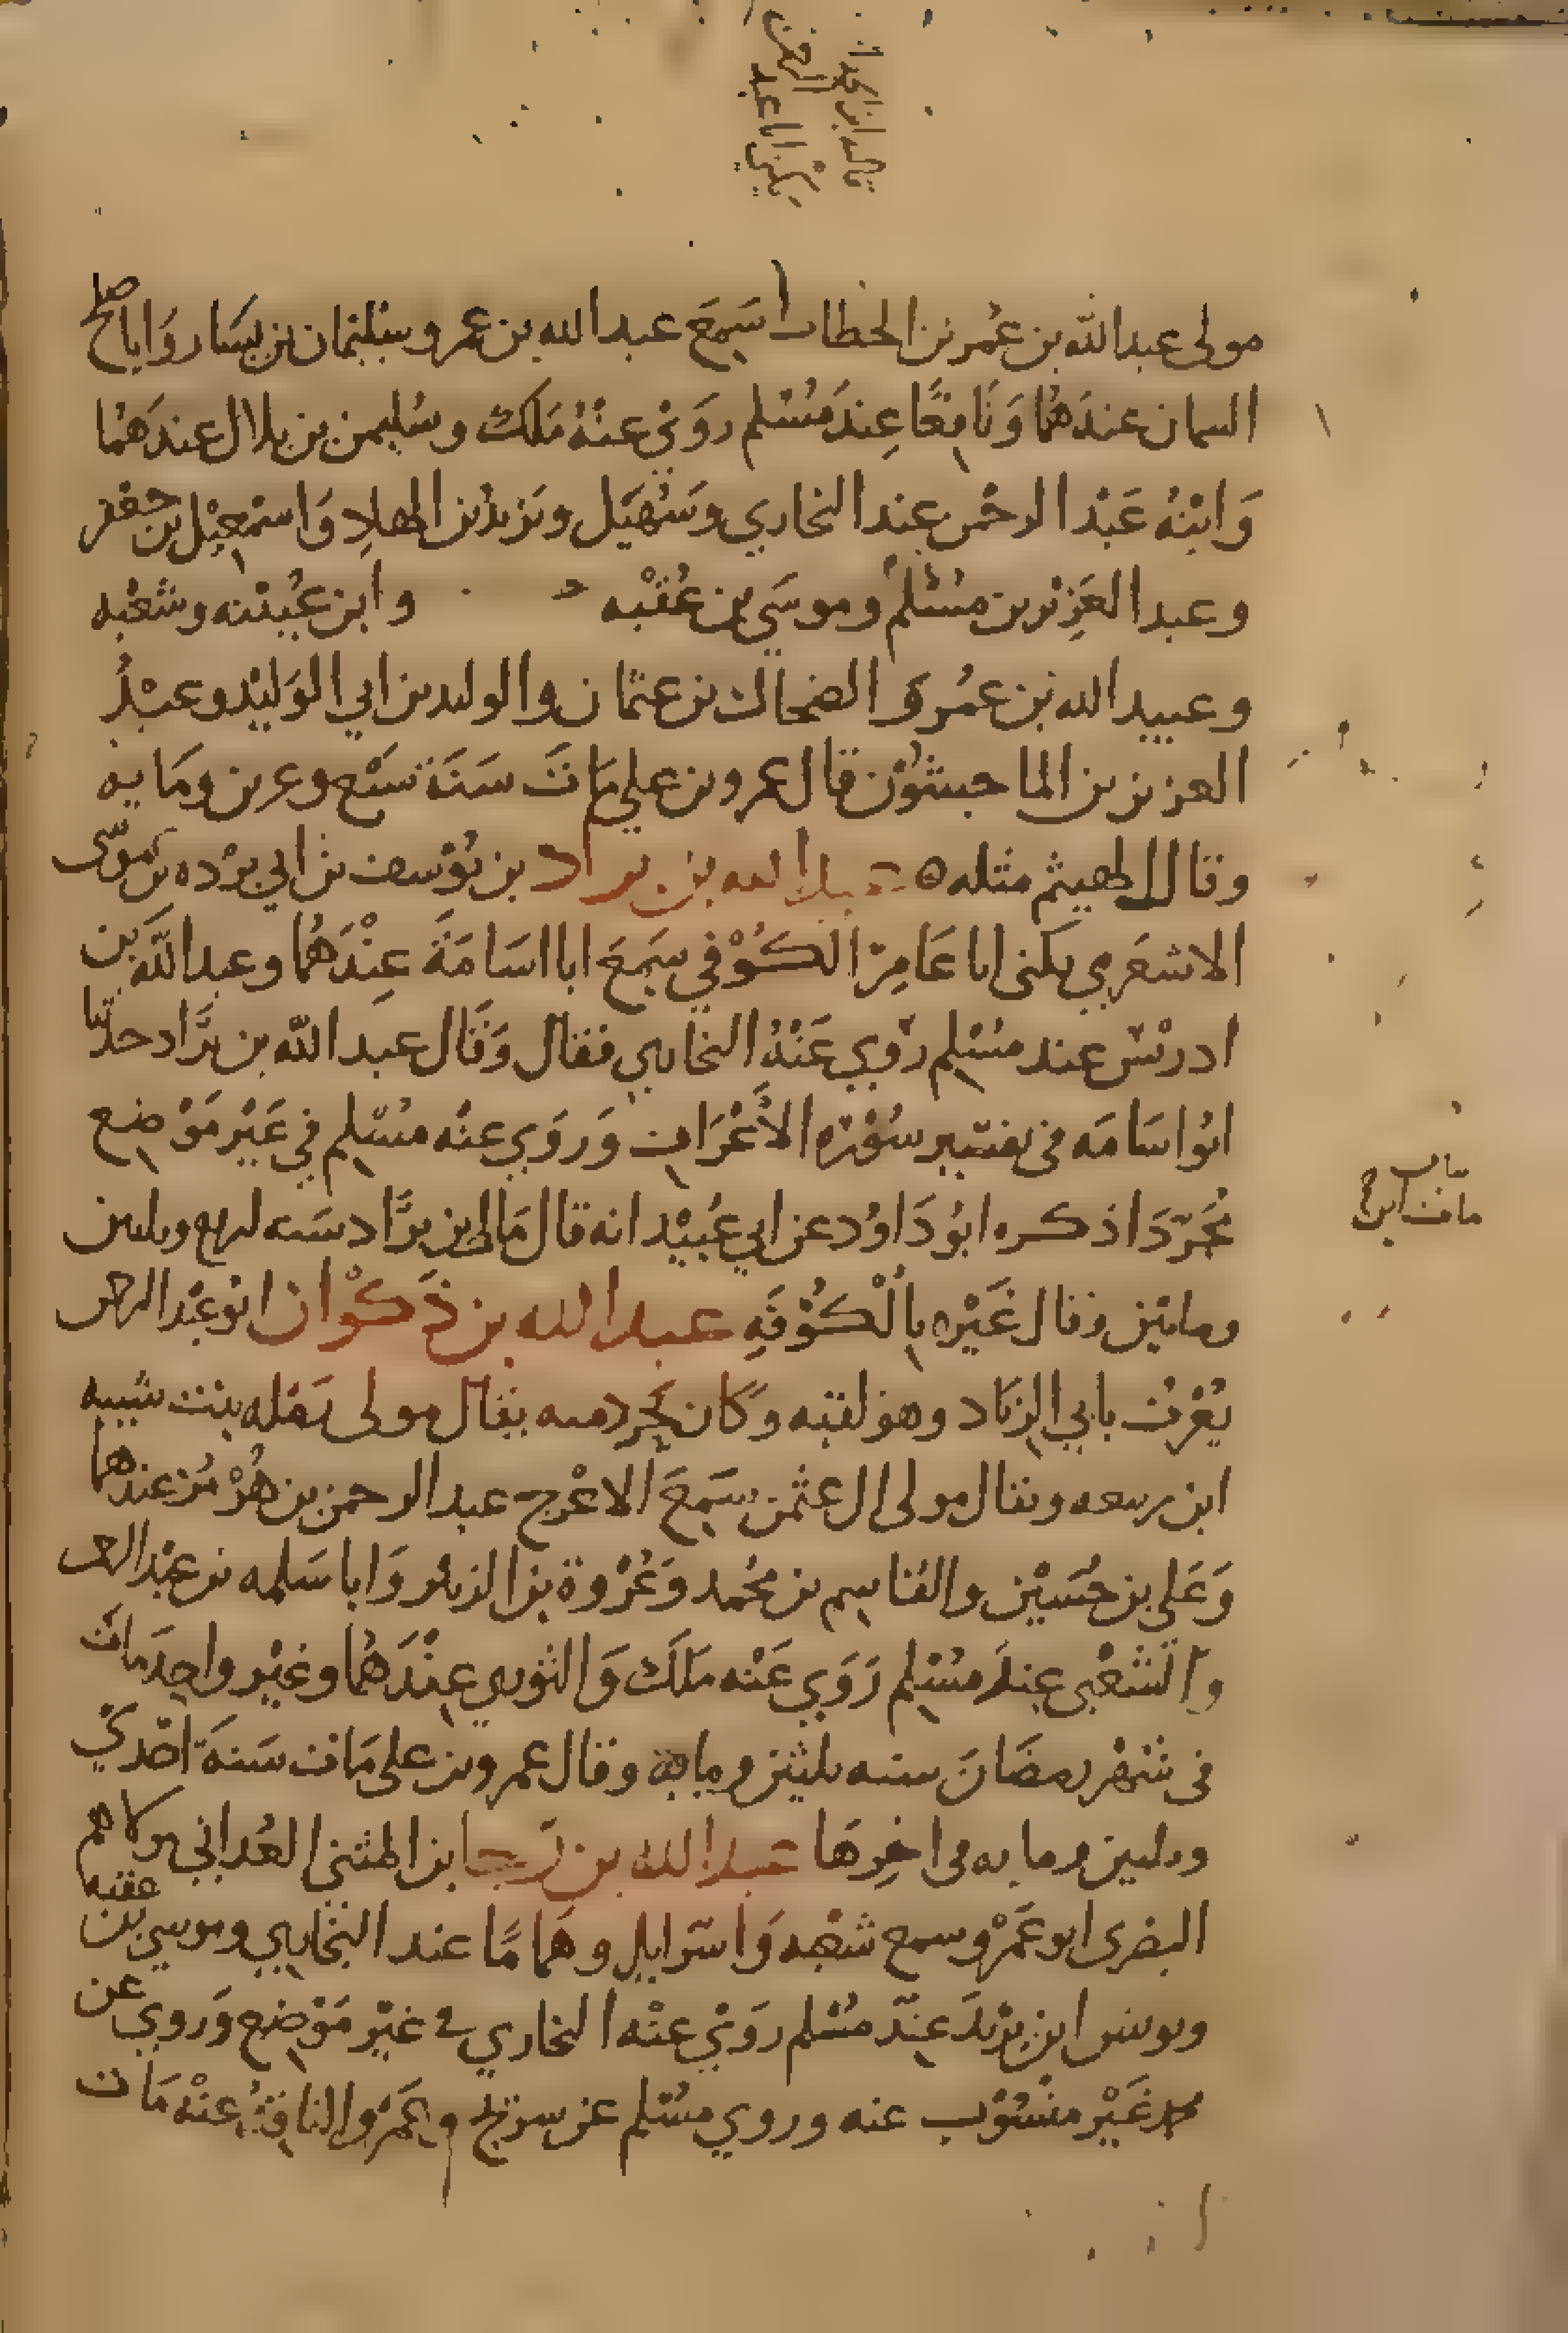 مولى عبد الله بن عمر بن الخطاب سمع عبد الله بن عمر وسليمان بن يسار وابا صالح
السمان عندهما ونافعا عند مسلم روى عنه ملك وسليمن بن بلال عندهما
وابنه عبد الرحمن عند البخاري وسهيل ويزيد بن الهاد واسمعيل بن جعفر
وعبد العزيز بن مسلم وموسى بن عقبه وابن عيينه وشعبه
وعبيد الله بن عمر والضحاك بن عثمان والوليد بن ابي الوليد وعبد
العزيز بن الماجشون قال عمرو بن علي مات سنة سبع وعشرين ومايه
وقال الهيثم مثله عبد الله بن براد بن يوسف بن ابي برده بن موسى
الاشعري يكنى ابا عامر الكوفي سمع ابا اسامة عندهما وعبد الله بن
ادريس عند مسلم روي عنه البخاري فقال وقال عبد الله بن براد حدثنا
ابو اسامه في تفسير سوره الاعراف وروي عنه مسلم في غير موضع
مجردا ذكره ابو داود عن ابي عبيد انه قال مات ابن براد سنه اربع وثلثين
ومايتين وقال غيره بالكوفه عبد الله بن ذكوان ابو عبد الرحمن
يعرف بابي الزناد وهو لقبه وكان يجرد منه يقال مولى رمله بنت شيبه
ابن ربيعه ويقال مولى ال عثمن سمع الاعرج عبد الرحمن بن هرمز عندهما
وعلي بن حسين والقاسم بن محمد وعروة بن الزبير وابا سلمه بن عبد
والشعبي عند مسلم روي عنه ملك والثوري عندهما وغير واحد مات
في شهر رمضان سنه ثلثين ومايه وقال عمرو بن علي مات سنة احدي
وثلثين ومايه في اخرها عبد الله بن رجا بن المثنى الغداني
البصرى ابو عمرو سمع شعبه واسراييل وهماما عند البخاري وموسي بن عقبه
ويونس ابن يزيد عند مسلم روى عنه البخاري في غير موضع وروي عن
محمد غير منسوب عنه وروي مسلم عن سريج وعمرو الناقد عنه مات